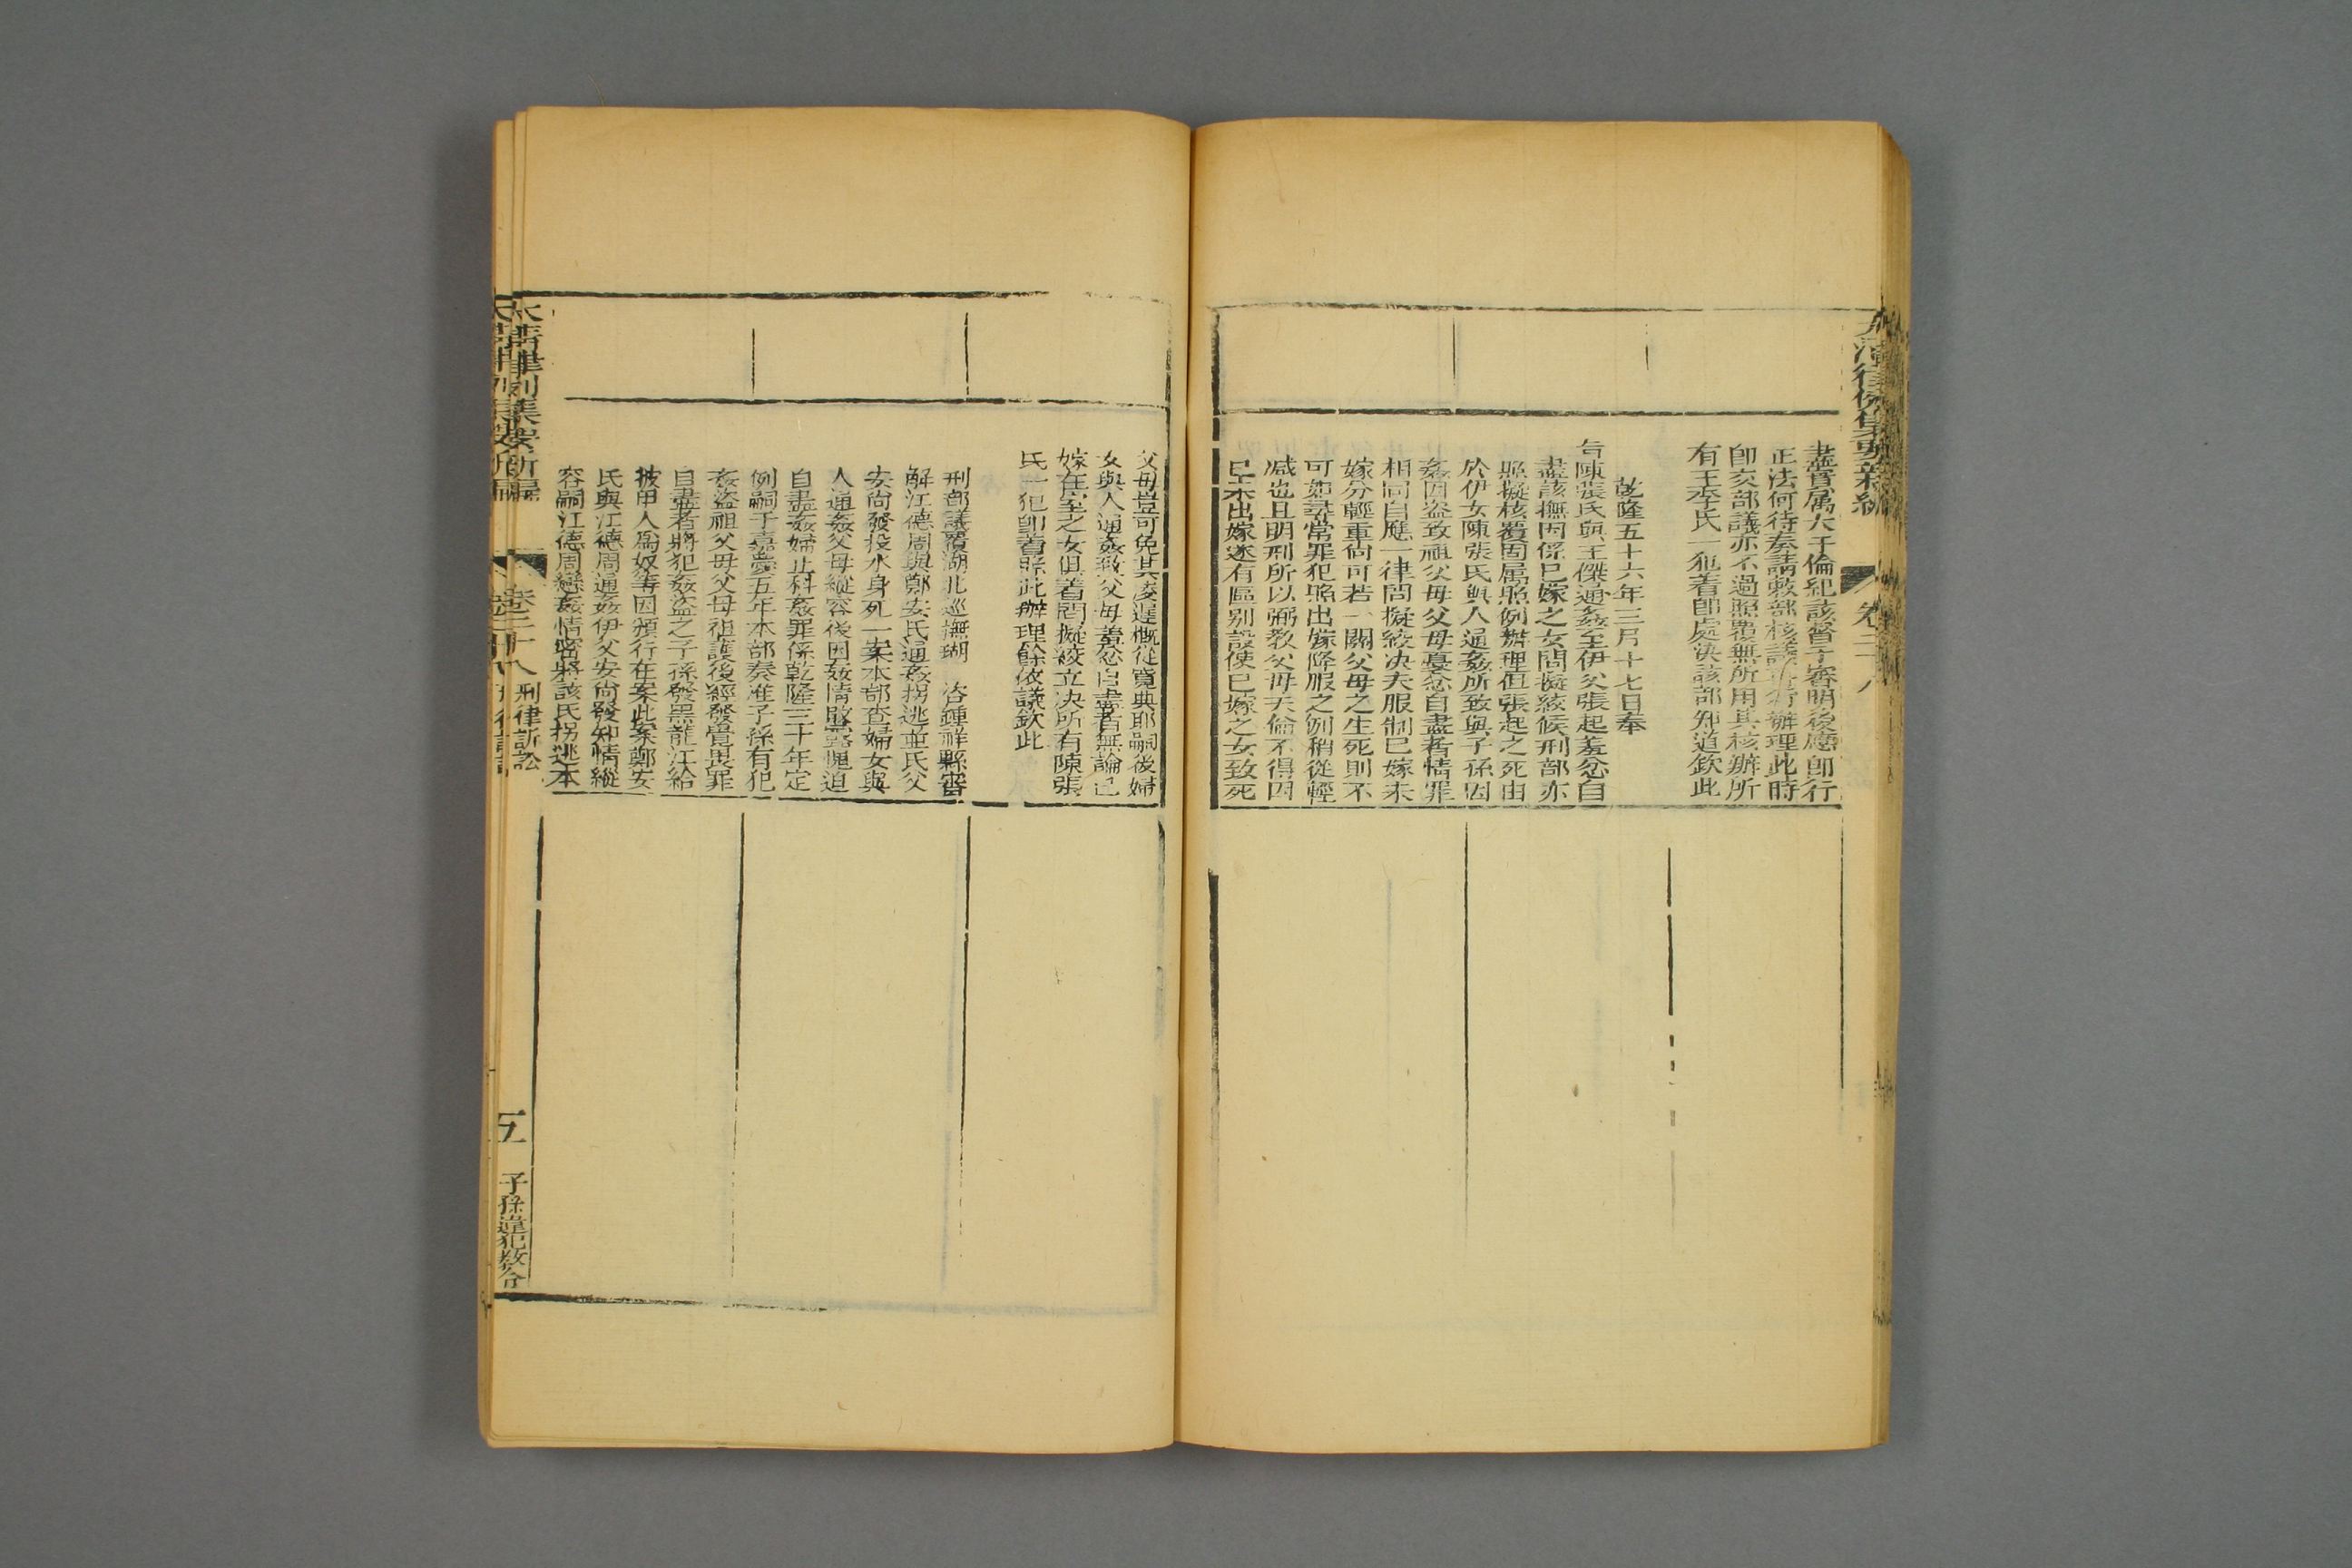 盡實屬大干倫紀該督于審明後應卽行
正法何待奏請敕部核議辦理此時
卽交部議亦不過照覆無所用其核辦所
有王李氏一犯着卽處決該部知道欽此
乾隆五十六年三月十七日奉
旨陳張氏與王傑通姦至伊父張起羞忿自
盡該撫因係已嫁之女問擬絞候刑部亦
照擬核覆固屬照例辦理但張起之死由
於伊女陳張氏與人通姦所致與子孫因
姦因盜致祖父母父母憂忿自盡者情罪
相同自應一律問擬絞决夫服制已嫁未
嫁分輕重尙可若一關父母之生死則不
可如尋常罪犯照出嫁降服之例稍從輕
减也且明刑所以弼教父母天倫不得因
已未出嫁遂有區别設使已嫁之女致死
父母豈可免其凌遲槪從寬典耶嗣後婦
女與人通姦致父母羞忿自盡者無論已
嫁在室之女俱着問擬絞立决所有陳張
氏一犯卽着照此辦理餘依議欽此
刑部議覆湖北巡撫瑚 咨鍾祥縣審
解江德周與鄭安氏通姦拐逃並氏父
安尙發投水身死一案本部查婦女與
人通姦父母縱容後因姦情敗露愧迫
自盡姦婦止科姦罪係乾隆三十年定
例嗣于嘉慶五年本部奏准子孫有犯
姦盜祖父母父母袒護後經發覺畏罪
自盡者將犯姦盜之子孫發黑龍江給
披甲人爲奴等因頒行在案此案鄭安
氏與江德周通姦伊父安尙發知情縱
容嗣江德周戀姦情密將該氏拐逃本
大清律例集要新編
卷二十八
刑律訴訟
五
子孫違犯教令